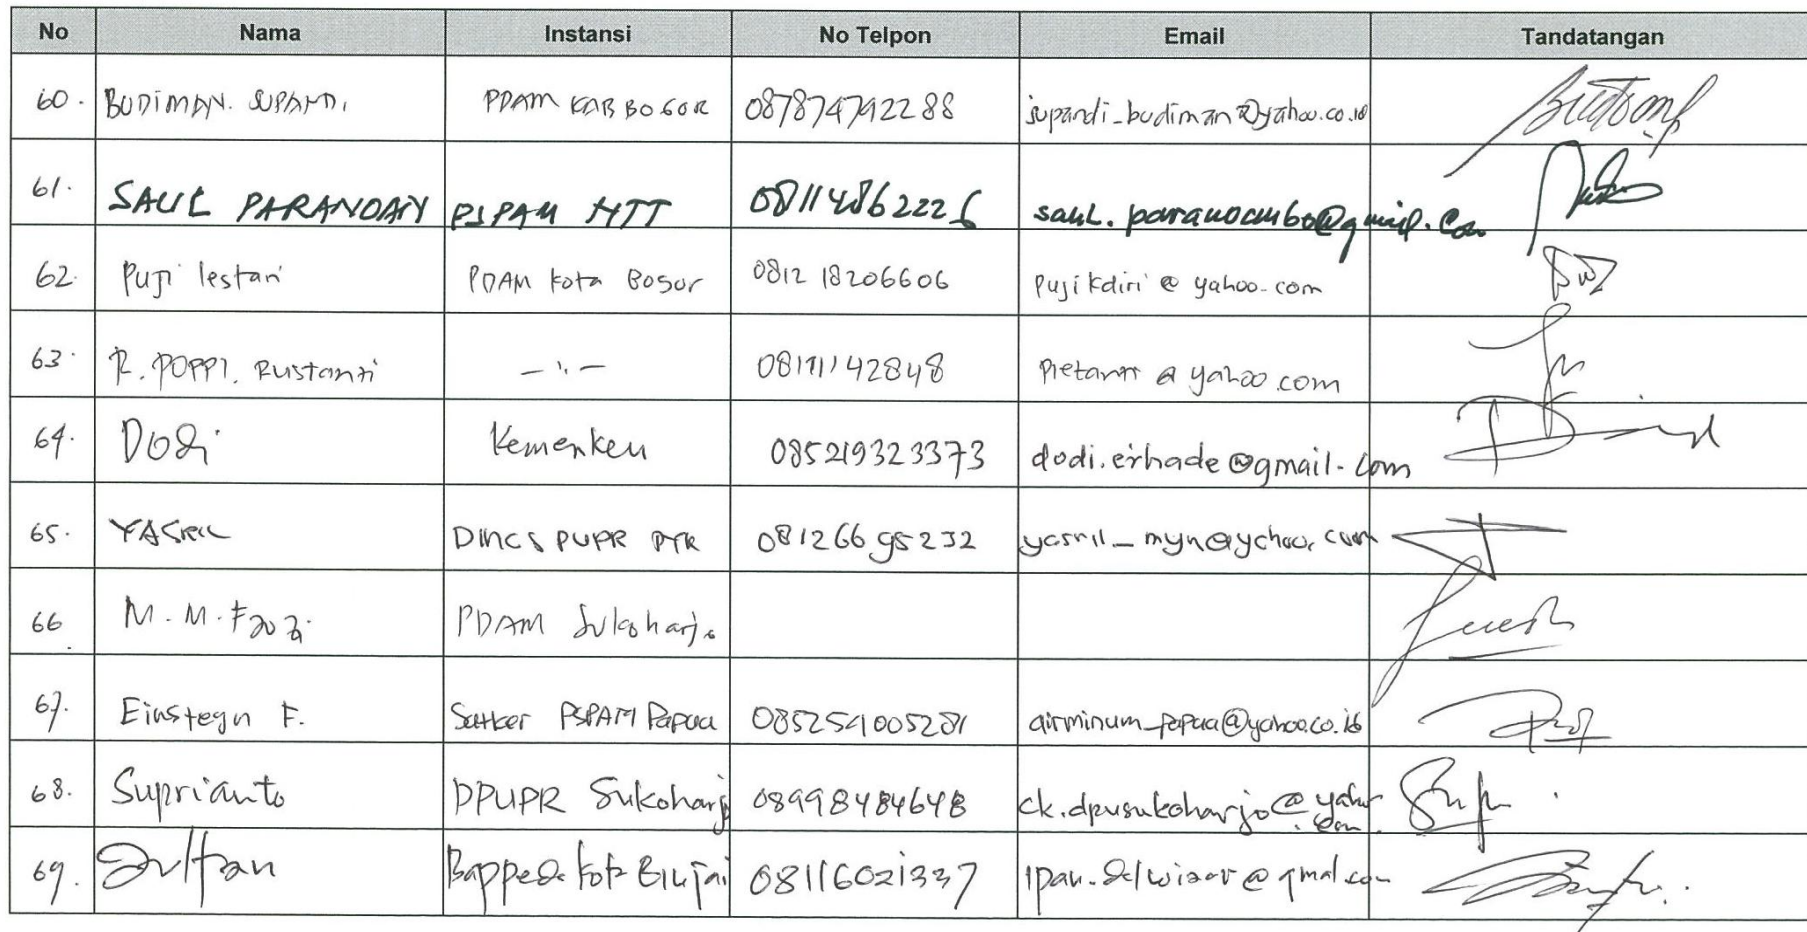 No Nama Instansi No Telpon Email Tandatangan
60. BUDIMAN. SUPANDI. PDAM KAB BOGOR 087874792288 supandi_budiman@yahoo.co.id
61. SAUL PARANOAN PSPAM NTT 08114862226 saul.paranoambo@gmail.com
62. Puji lestari PDAM Kota Bogor 0812 18206606 pujikdiri @ yahoo.com
63. R. POPPI. Rustanti — " — 08111142848 @ yahoo.com
64. Dodi Kemenkeu 085219323373 dodi.erhade@gmail.com
65. YASRIL DINAS PUPR PYK 081266695232 yasril_myn@yahoo.com
66. M. M. Fauzi PDAM Sukoharjo
67. Einsteyn F. Satker PSPAM Papua 085254005281 airminum_papua@yahoo.co.id
68. Suprianto DPUPR Sukoharjo 08998484648 ck.dpusukoharjo@yahoo.com
69. Bappeda Kota Binjai 08116021337